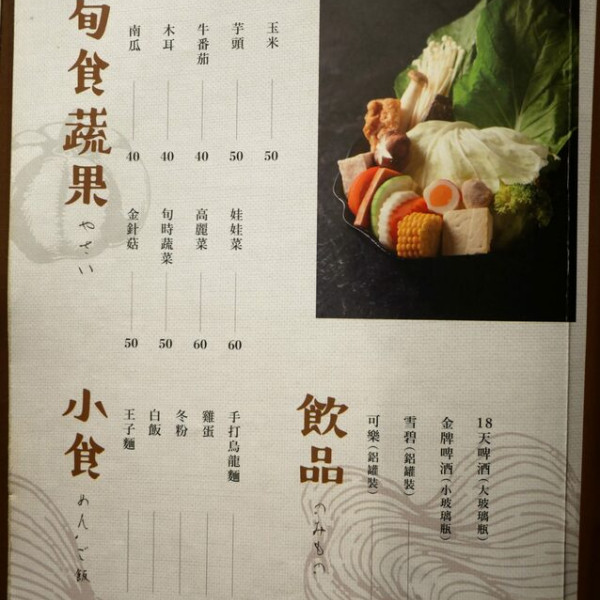 旬食蔬果
やさい
玉米 50
芋頭 50
牛番茄 40
木耳 40
南瓜 40
娃娃菜 60
高麗菜 60
旬時蔬菜 50
金針菇 50
飲品
のみもの
18天啤酒(大玻璃瓶)
金牌啤酒(小玻璃瓶)
雪碧(鋁罐裝)
可樂(鋁罐裝)
小食
めん・ご飯
手打烏龍麵
雞蛋
冬粉
白飯
王子麵